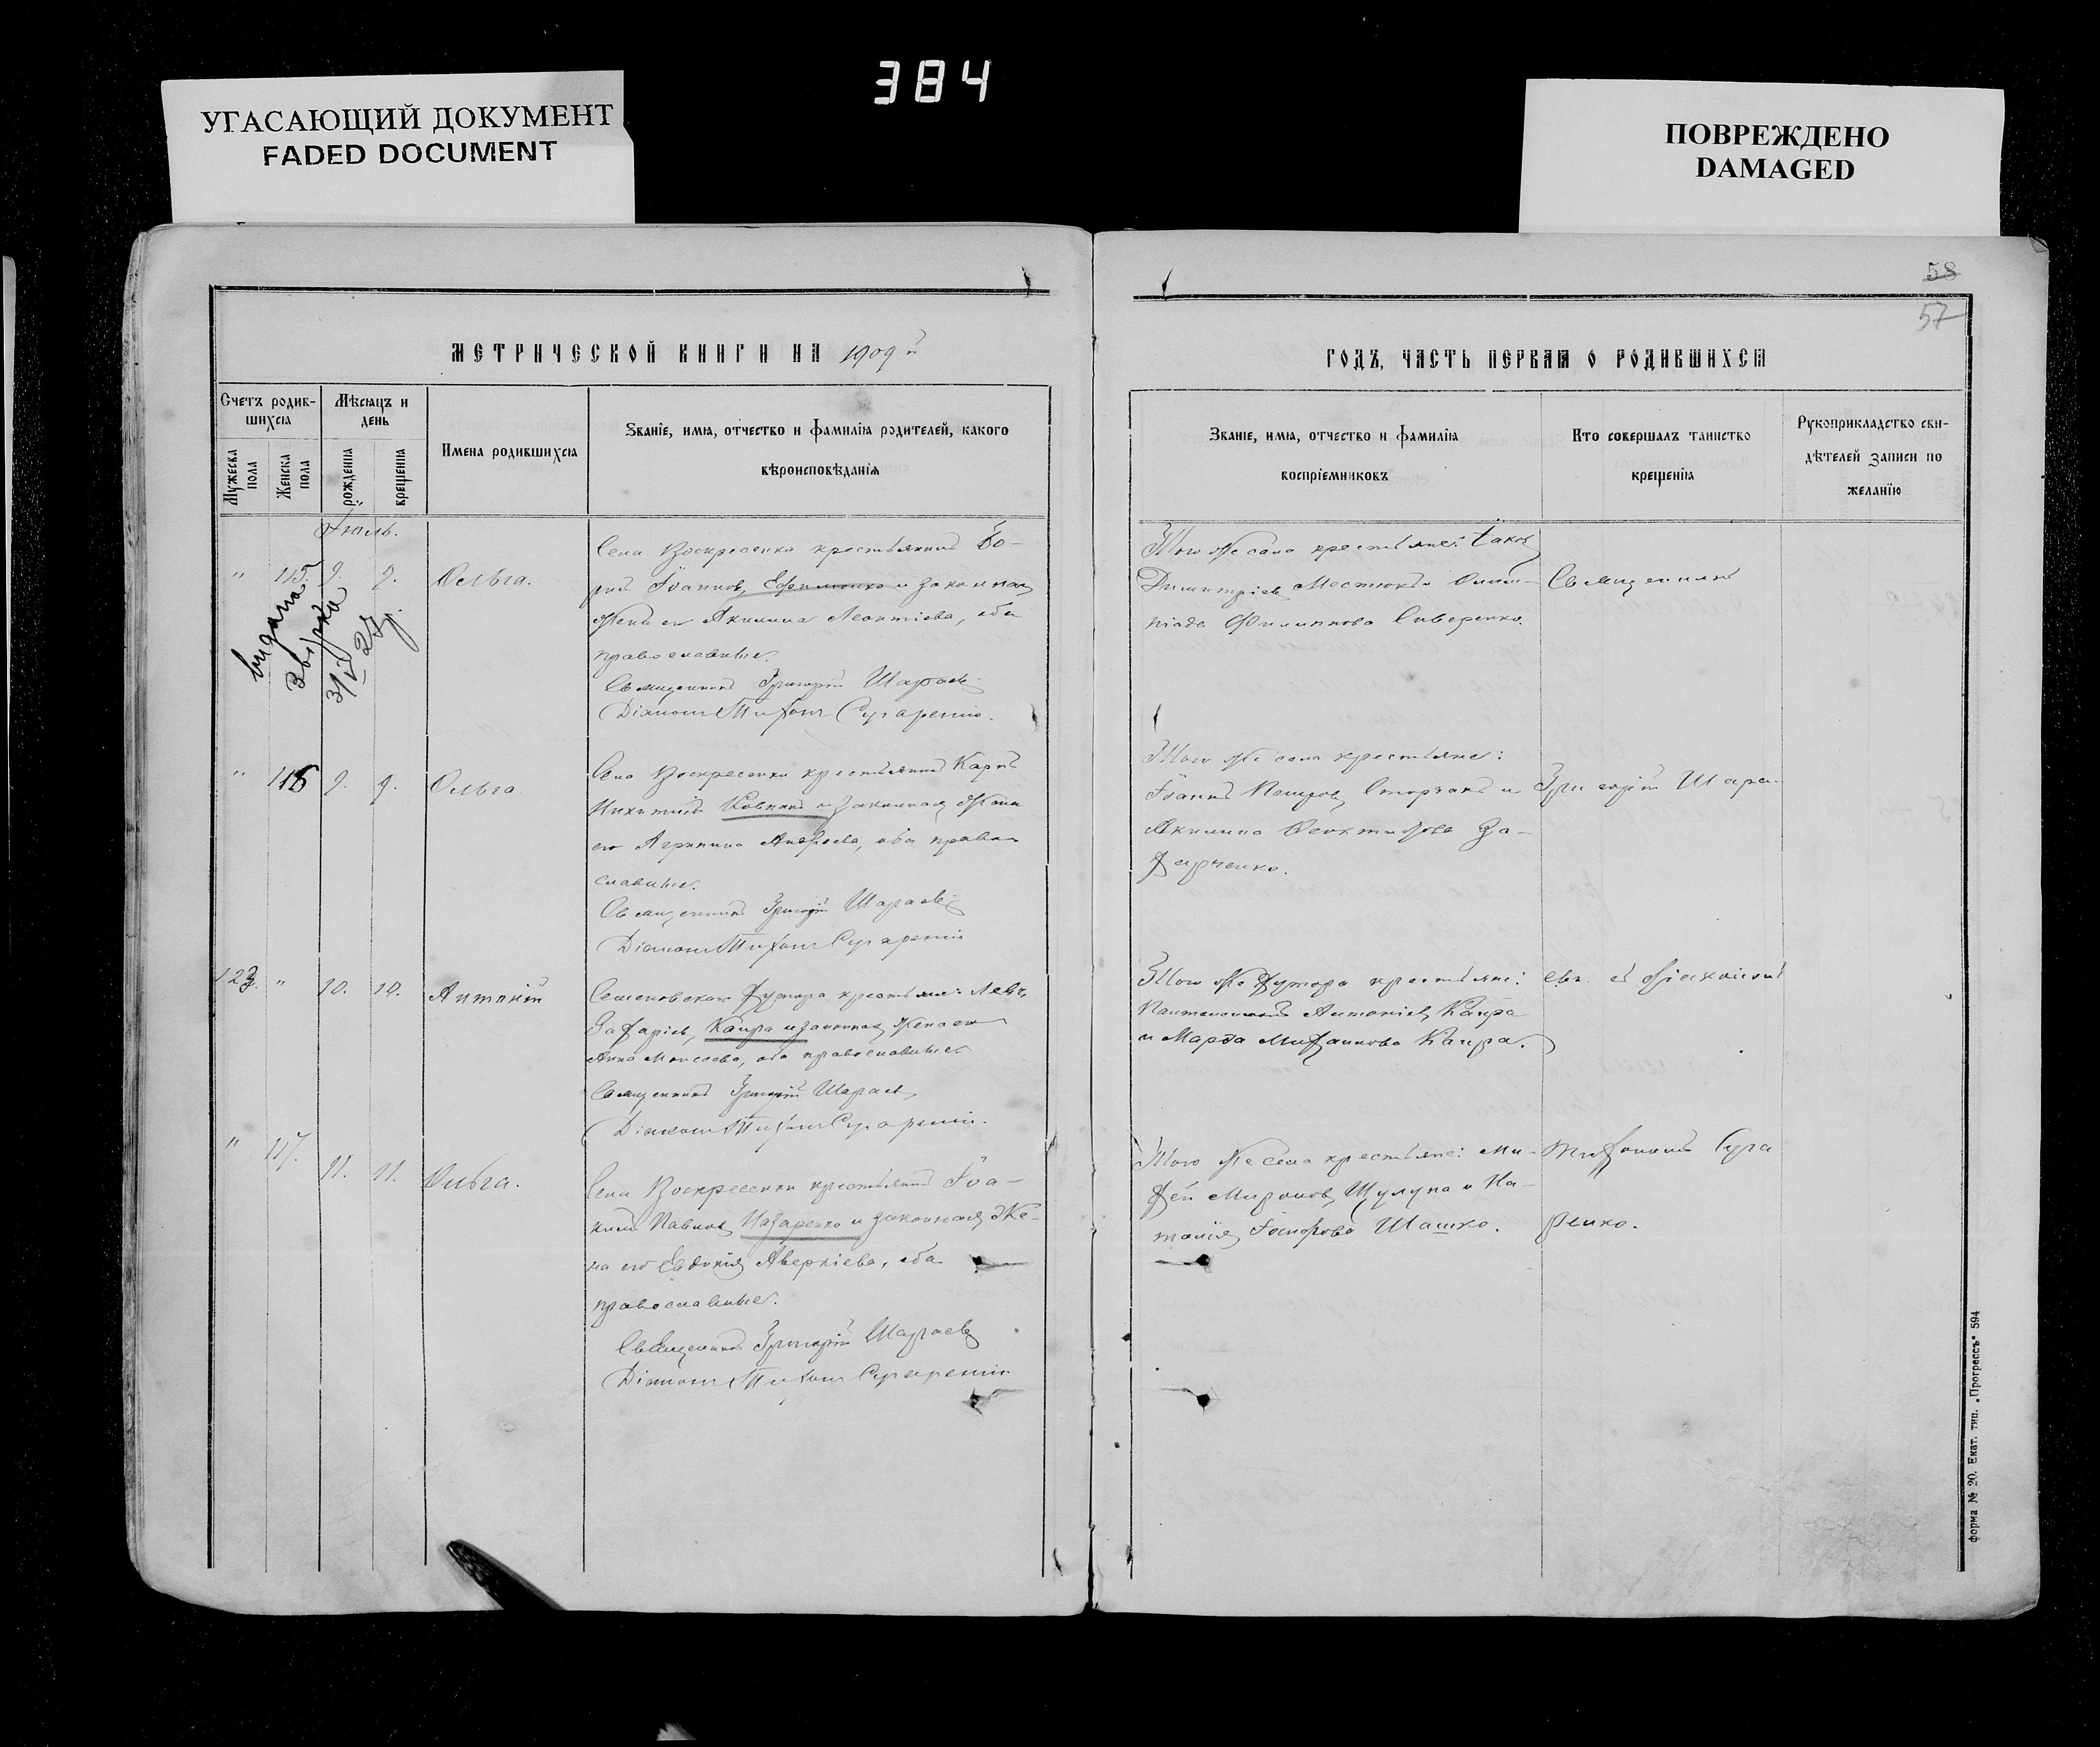 384
УГАСАЮЩИЙ ДОКУМЕНТ
FADED DOCUMENT
ПОВРЕЖДЕНО
DAMAGED
58
57
МЕТРИЧЕСКОЙ КНИГИ НА 1909 й
ГОДЪ, ЧАСТЬ ПЕРВАЯ О РОДИВШИХСЯ
Счетъ родив-
шихся
Мужеска пола
Женска пола
Мѣсяцъ и
день
рожденія
крещенія
Имена родившихся
Званіе, имя, отчество и фамилія родителей, какого
вѣроисповѣданія
Званіе, имя, отчество и фамилія
воспріемниковъ
Кто совершалъ таинство
крещенія
Рукоприкладство сви-
дѣтелей записи по
желанію
Іюль.
" 115. 9. 9. Ольга.
видана
31/V 27 р.
Села Воскресенки крестьянинъ Бо-
рисъ Іоанновъ Ефименко и законная
жена его Акилина Леонтіева, оба
православные.
Священникъ Григорій Шараевъ
Діаконъ Тихонъ Сугаренко.
Того же села крестьяне: Іаковъ
Димитріевъ Местюкъ и Олим-
піада Филиппова Сиверенко.
Священникъ
" 116 9. 9. Ольга.
Села Воскресенки крестьянинъ Карпъ
Никитинъ Ковпакъ и законная жена
его Агрипина Андреева, оба право-
славные.
Священникъ Григорій Шараевъ
Діаконъ Тихонъ Сугаренко
Того же села крестьяне:
Іоаннъ Петровъ Сторчакъ и
Акилина Феоктистова За-
харченко.
Григорій Шара-
123. " 10. 10. Антоній
Семеновскаго хутора крестьяне: Левъ
Захаріевъ Каира и законная жена его
Анна Моисеева, оба православные.
Священникъ Григорій Шараевъ
Діаконъ Тихонъ Сугаренко.
Того же хутора крестьяне:
Пантелеимонъ Антоніевъ Каира
и Марфа Митрофанова Каира.
евъ съ діакономъ
" 117. 11. 11. Ольга.
Села Воскресенки крестьянинъ Іоа-
кимъ Павловъ Назаренко и законная же-
на его Евдокія Аверкіева, оба
православные.
Священникъ Григорій Шараевъ
Діаконъ Тихонъ Сугаренко
Того же села крестьяне: Ми-
хей Мироновъ Шулупа и На-
талія Іосифова Шашко.
Тихономъ Суга
ренко.
форма № 20. Екат. тип. „Прогрессъ" 594